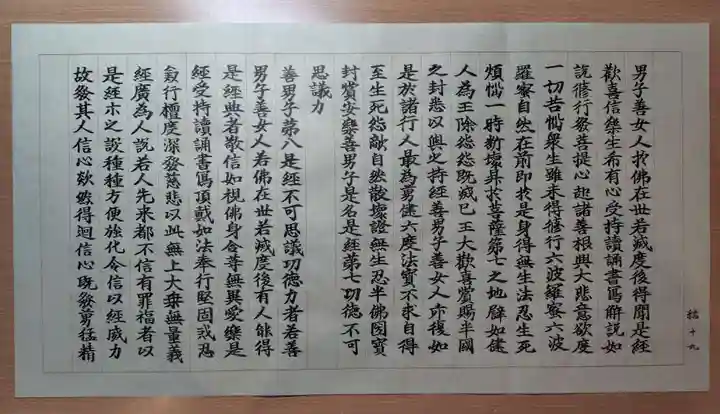 男子善女人於佛在世若滅度後得聞是經
歡喜信樂生希有心受持讀誦書寫解說如
說修行發菩提心起諸善根興大悲意欲度
一切苦惱眾生雖未得修行六波羅蜜六波
羅蜜自然在前即於是身得無生法忍生死
煩惱一時斷壞昇於菩薩第七之地譬如健
人為王除怨怨既滅已王大歡喜賞賜半國
之封悉以與之持經善男子善女人亦復如
是於諸行人最為勇健六度法寶不求自得
至生死怨敵自然散壞證無生忍半佛國寶
封賞安樂善男子是名是經第七功德不可
思議力
善男子第八是經不可思議功德力者若善
男子善女人若佛在世若滅度後有人能得
是經典者敬信如視佛身令等無異愛樂是
經受持讀誦書寫頂戴如法奉行堅固戒忍
兼行檀度深發慈悲以此無上大乘無量義
經廣為人說若人先來都不信有罪福者以
是經示之設種種方便強化令信以經威力
故發其人信心欻然得迴信心既發勇猛精
十九